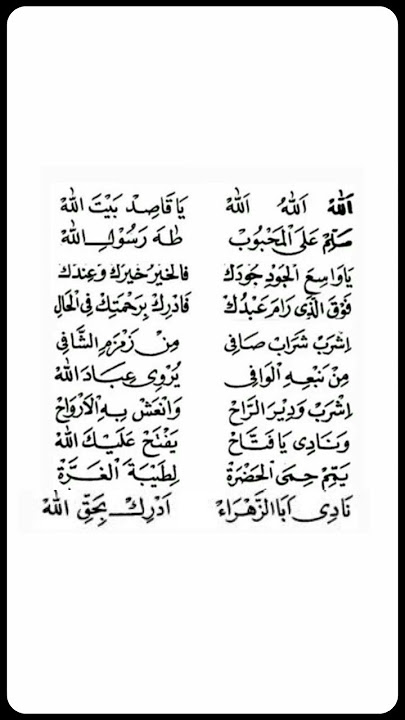 اَللّٰهْ اَللّٰهُ اَللّٰهْ يَا قَاصِدْ بَيْتَ اللّٰهْ
سَلِّمْ عَلَى الْمَحْبُوبْ طٰهَ رَسُوْلِ اللّٰهْ
يَاوَاسِعَ الْجُوْدِ جُوْدَكْ فَالْخَيْرُ خَيْرَكْ وَعِنْدَكْ
فَوْقَ الَّذِى رَامَ عَبْدُكْ فَادْرِكْ بِرَحْمَتِكْ فِى الْحَالِ
اِشْرَبْ شَرَابْ صَافِى مِنْ زَمْزَمِ الشَّافِى
مِنْ نَبْعِهِ الْوَافِى يُرْوِى عِبَادَ اللّٰهْ
اِشْرَبْ وَدِيْرَ الرَّاحْ وَانْعَشْ بِهِ الْاَرْوَاحْ
وَنَادِى يَا فَتَّاحْ يَفْتَحْ عَلَيْكَ اللّٰهْ
يَمِّمْ حِمَى الْحَضْرَةْ لِطَيْبَةَ الْغَرَّةْ
نَادِى اَبَا الزَّهْرَاءْ اَدْرِكْ بِحَقِّ اللّٰهْ